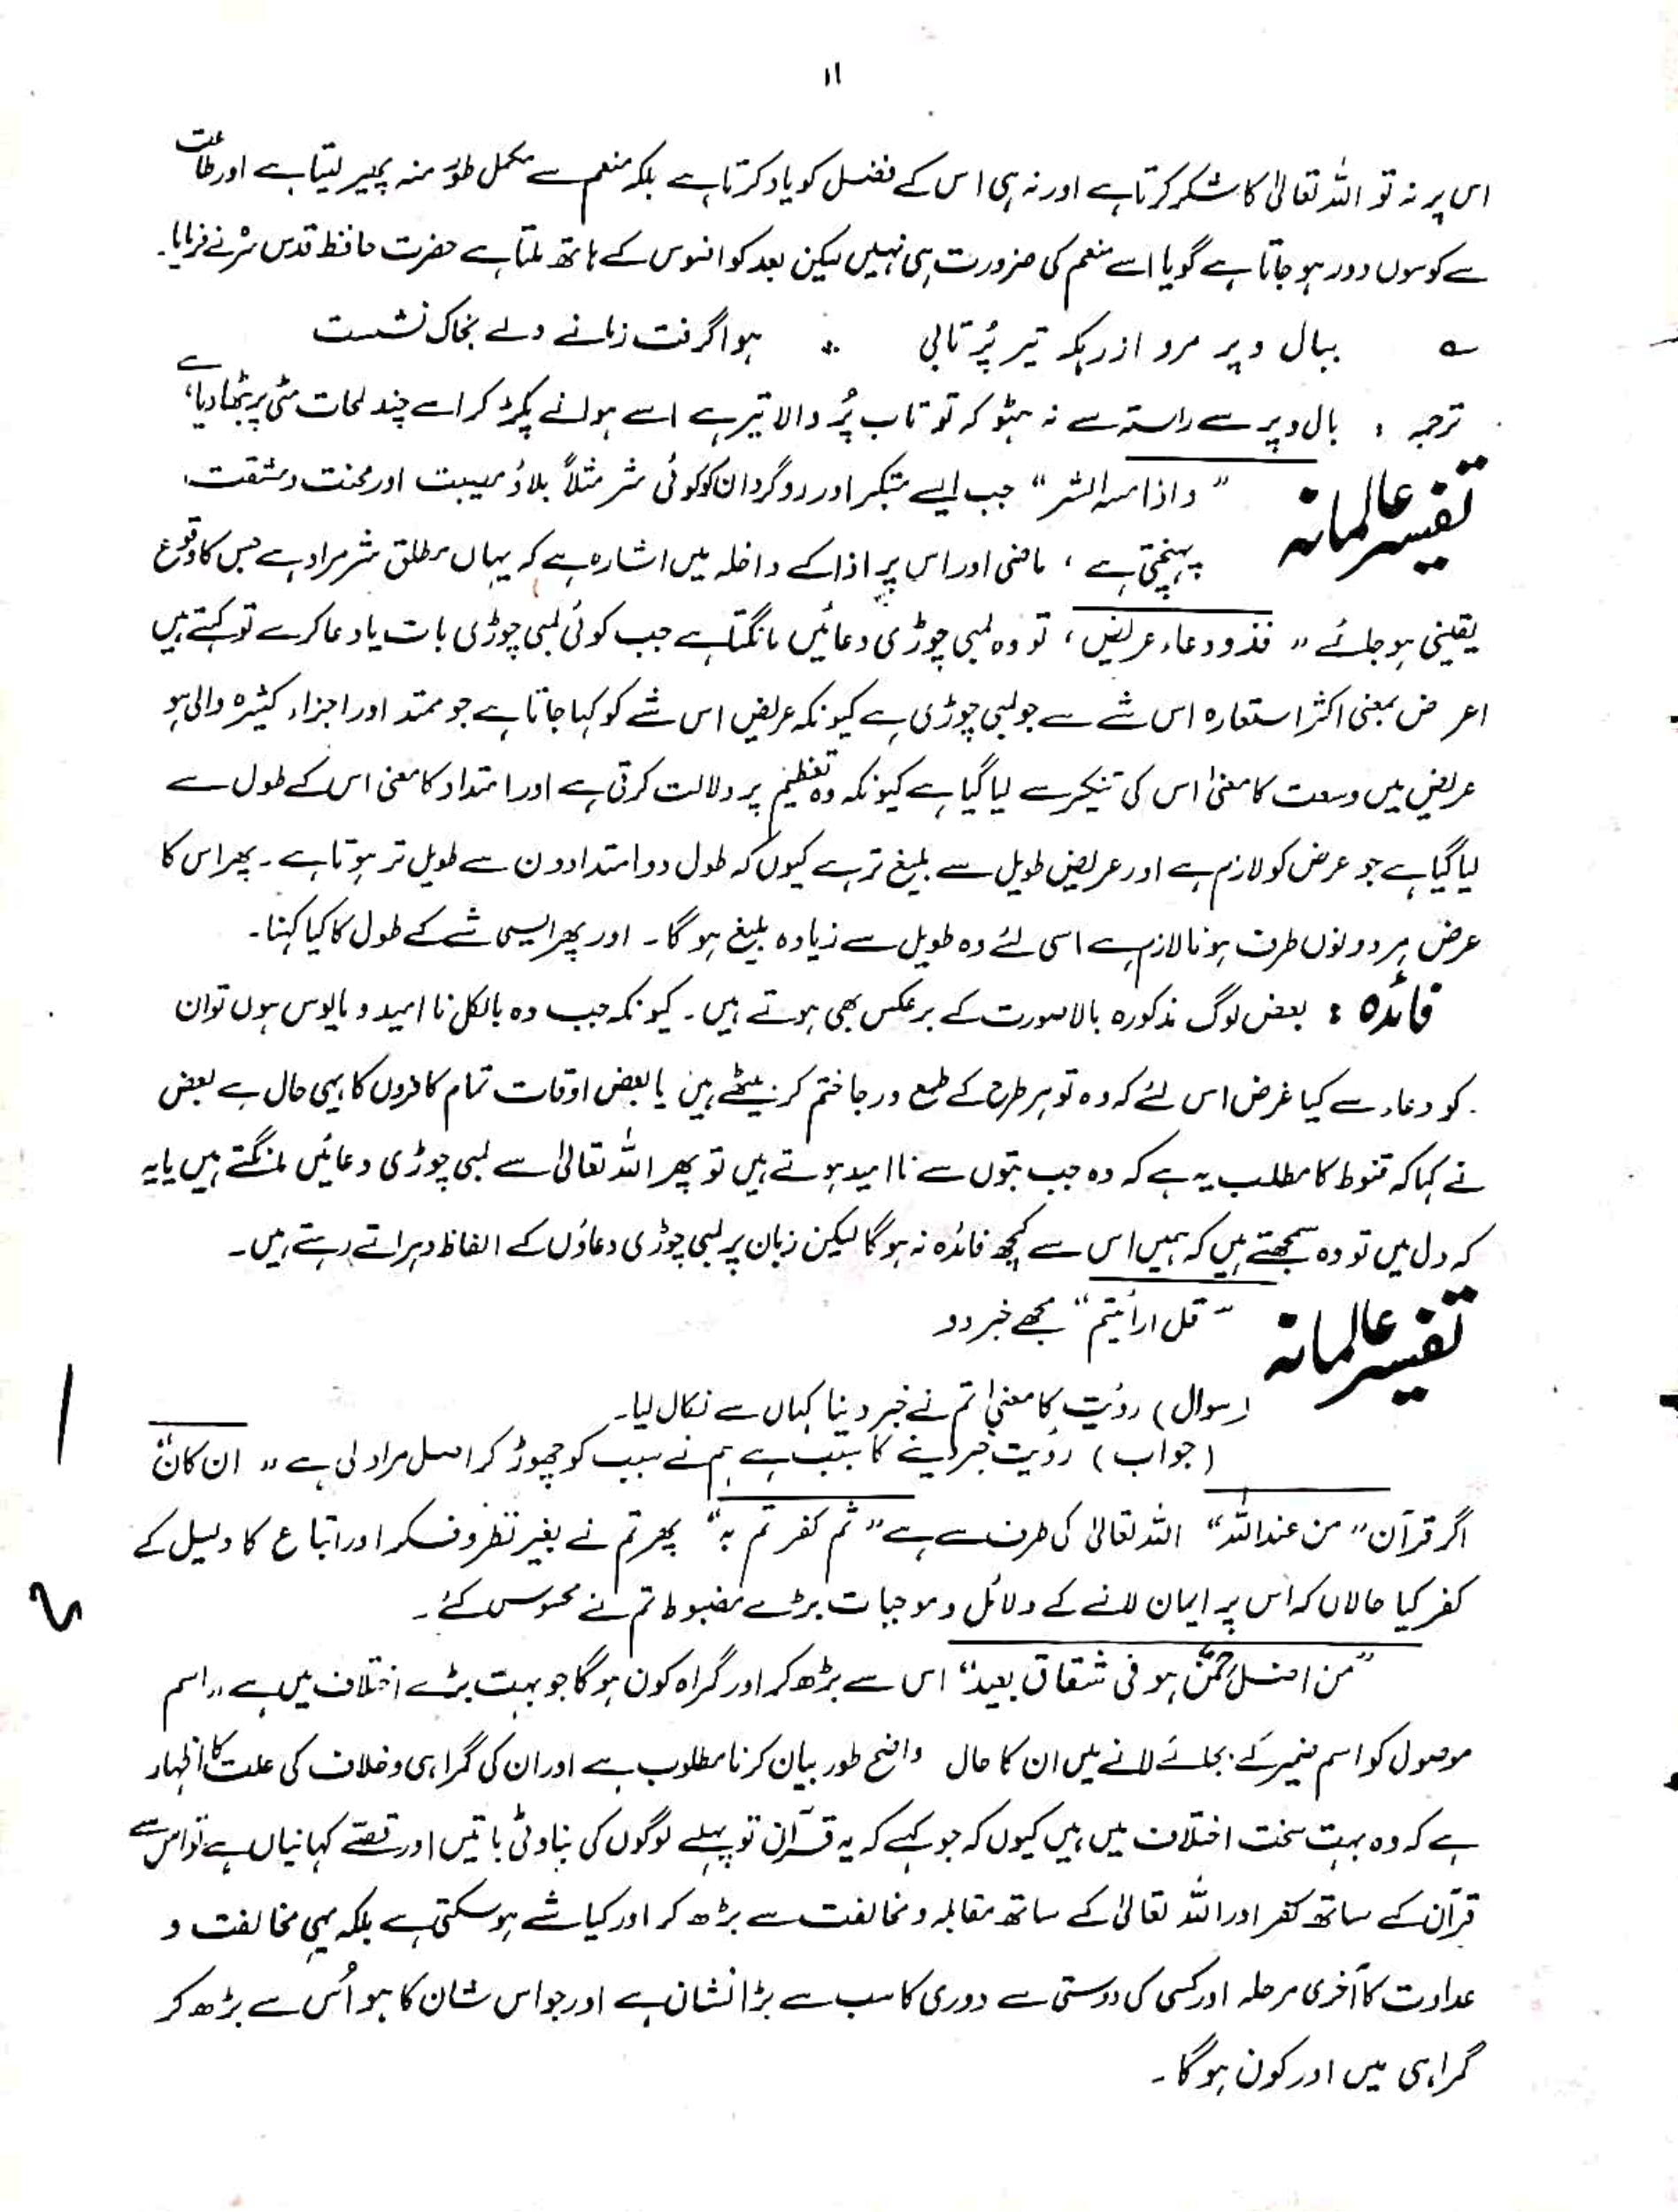 ۱۱
اس پر نہ تو اللہ تعالیٰ کا شکر کرتا ہے اور نہ ہی اس کے فضل کو یاد کرتا ہے بلکہ منعم سے مکمل طور منہ پھیر لیتا ہے اور طاعت
سے کوسوں دور ہو جاتا ہے گویا اسے منعم کی ضرورت ہی نہیں لیکن بعد کو افسوس کے ہاتھ ملتا ہے حضرت حافظ قدس سرہ نے فرمایا۔
؎ ببال و پر مرو از رہ کہ تیر پُر تابی ٭ ہوا گرفت زمانے ولے بخاک نشست
ترجمہ : بال و پر سے راستہ سے نہ ہٹو کہ تو تاب پُر والا تیر ہے اسے ہوا نے پکڑ کر اسے چند لمحات مٹی پر بٹھا دیا ہے
تفسیر عالمانہ "و اذا مسہ الشر" جب ایسے متکبر اور روگردان کو کوئی شر مثلاً بلاؤ مصیبت اور محنت و مشقت
پہنچتی ہے ، ماضی اور اس پر اذا کے داخلہ میں اشارہ ہے کہ یہاں مطلق شر مراد ہے جس کا وقوع
یقینی ہو جائے " فذو دعاء عریض ، تو وہ لمبی چوڑی دعائیں مانگتا ہے جب کوئی لمبی چوڑی بات یا دعا کرے تو کہتے ہیں
اعرض بمعنی اکثر استعارہ اس شے سے جو لمبی چوڑی ہے کیونکہ عریض اس شے کو کہا جاتا ہے جو ممتد اور اجزاء کثیرہ والی ہو
عریض میں وسعت کا معنیٰ اس کی تنکیر سے لیا گیا ہے کیونکہ وہ تعظیم پر دلالت کرتی ہے اور امتداد کا معنی اس کے طول سے
لیا گیا ہے جو عرض کو لازم ہے اور عریض طویل سے بلیغ تر ہے کیوں کہ طول دو امتدادوں سے طویل تر ہوتا ہے ۔ پھر اس کا
عرض ہر دونوں طرف ہونا لازم ہے اسی لئے وہ طویل سے زیادہ بلیغ ہوگا ۔ اور پھر ایسی شے کے طول کا کیا کہنا۔
فائدہ : بعض لوگ مذکورہ بالا صورت کے برعکس بھی ہوتے ہیں ۔ کیونکہ جب وہ بالکل نا امید و مایوس ہوں تو ان
کو دعاء سے کیا غرض اس لئے کہ وہ تو ہر طرح کے طمع و رجا ختم کر بیٹھے ہیں یا بعض اوقات تمام کافروں کا یہی حال ہے بعض
نے کہا کہ قنوط کا مطلب یہ ہے کہ وہ جب بتوں سے نا امید ہوتے ہیں تو پھر اللہ تعالیٰ سے لمبی چوڑی دعائیں مانگتے ہیں یا یہ
کہ دل میں تو وہ سمجھتے ہیں کہ ہمیں اس سے کچھ فائدہ نہ ہوگا لیکن زبان پر لمبی چوڑی دعاؤں کے الفاظ دہراتے رہتے ہیں ۔
تفسیر عالمانہ " قل ارأیتم " مجھے خبر دو
(سوال) رؤیت کا معنیٰ تم نے خبر دینا کہاں سے نکال لیا۔
(جواب) رؤیت خبر دینے کا سبب ہے ہم نے سبب کو چھوڑ کر اصل مراد لی ہے " ان کان "
اگر قرآن " من عند اللہ " اللہ تعالیٰ کی طرف سے ہے " ثم کفرتم بہ " پھر تم نے بغیر نظر و فکر اور اتباع کا دلیل کے
کفر کیا حالاں کہ اس پر ایمان لانے کے دلائل و موجبات بڑے مضبوط تم نے محسوس کئے ۔
"من اضل ممن ہو فی شقاق بعید" اس سے بڑھ کر اور گمراہ کون ہوگا جو بہت بڑے اختلاف میں ہے ،، اسم
موصول کو اسم ضمیر کے بجائے لانے میں ان کا حال واضح طور بیان کرنا مطلوب ہے اور ان کی گمراہی و خلاف کی علت کا اظہار
ہے کہ وہ بہت سخت اختلاف میں ہیں کیوں کہ جو کہے کہ یہ قرآن تو پہلے لوگوں کی بناوٹی باتیں اور قصے کہانیاں ہے تو اس سے
قرآن کے ساتھ کفر اور اللہ تعالیٰ کے ساتھ مقابلہ و مخالفت سے بڑھ کر اور کیا شے ہو سکتی ہے بلکہ یہی مخالفت و
عداوت کا آخری مرحلہ اور کسی کی دوستی سے دوری کا سب سے بڑا نشان ہے اور جو اس شان کا ہو اُس سے بڑھ کر
گمراہی میں اور کون ہوگا ۔